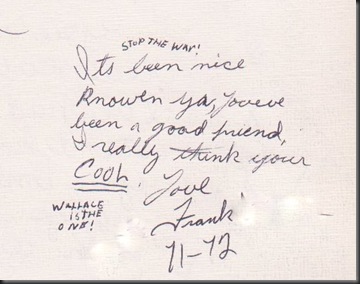 STOP THE WAR!
Its been nice
Knowen ya, Youve
been a good friend,
I really think your
COOL.
Love
Frank
71-72
WALLACE
IS THE
ONE!